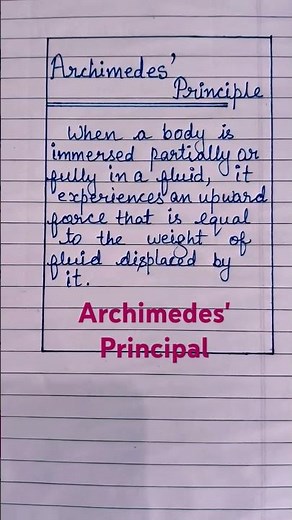 Archimedes'
Principle
When a body is
immersed partially or
fully in a fluid, it
experiences an upward
force that is equal
to the weight of
fluid displaced by
it.
Archimedes'
Principal